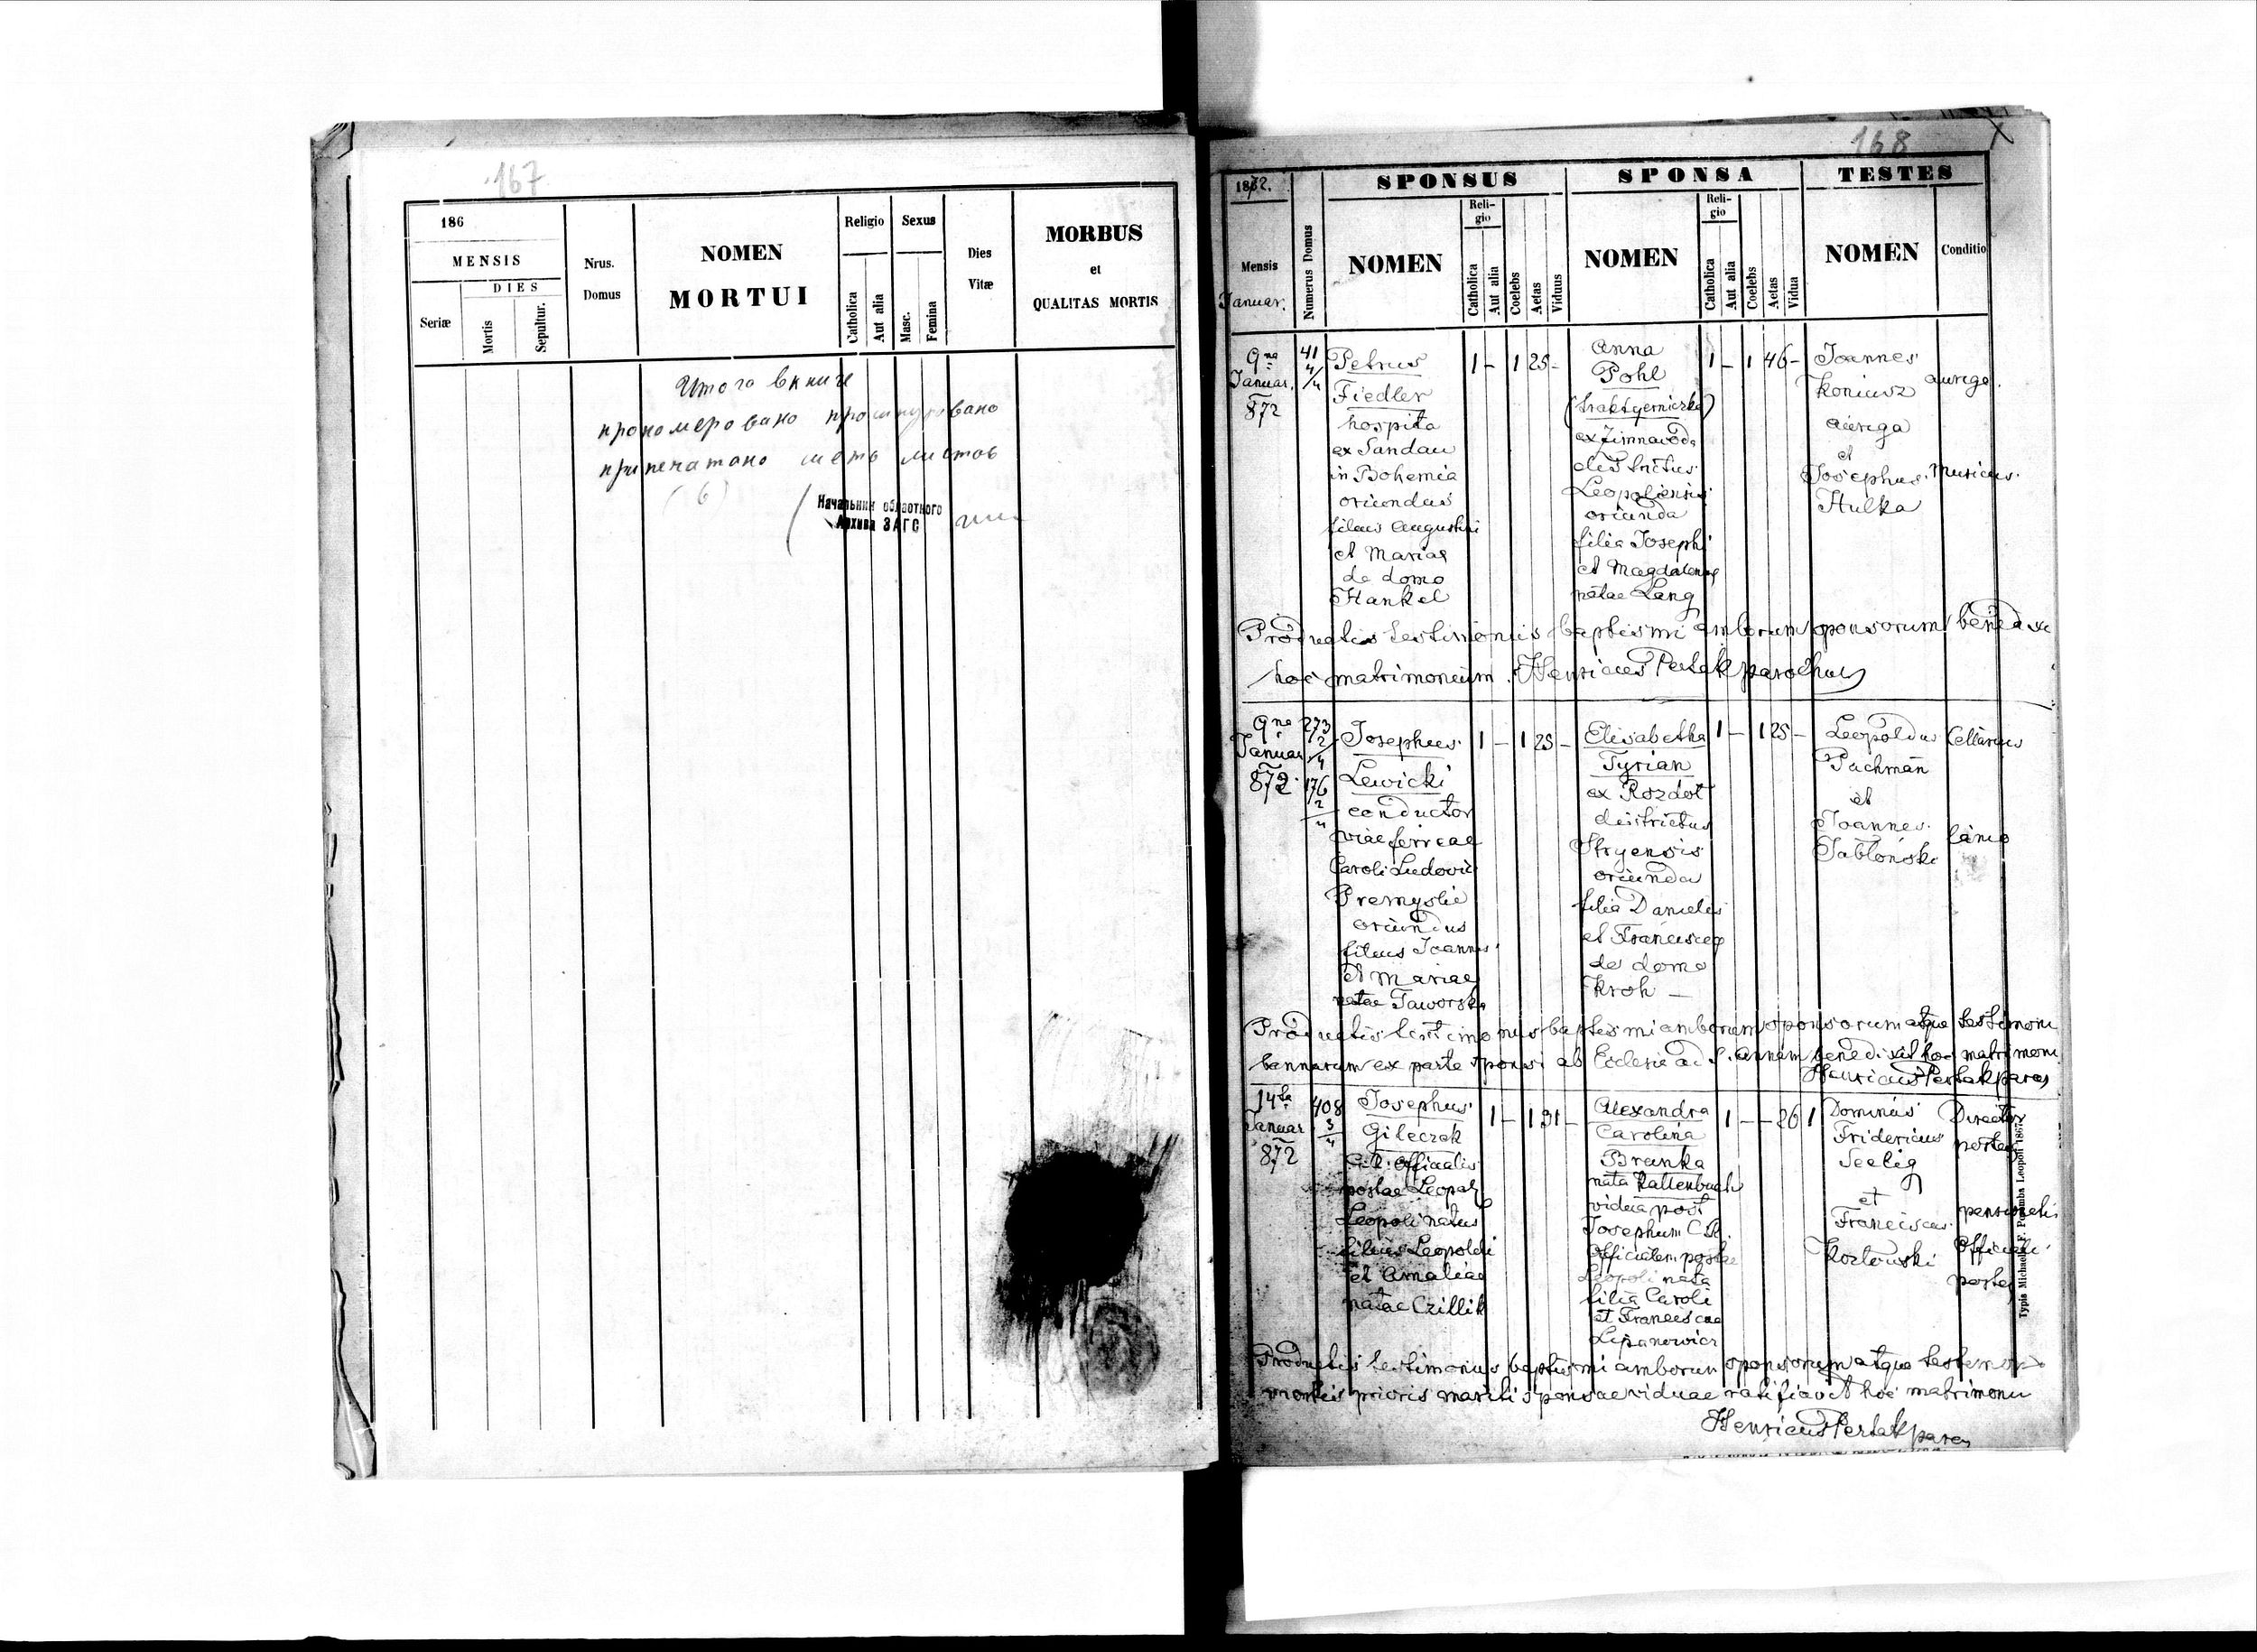 167
186
MENSIS
DIES
Seriæ
Mortis
Sepultur.
Nrus.
Domus
NOMEN
MORTUI
Religio
Catholica
Aut alia
Sexus
Masc.
Femina
Dies
Vitæ
MORBUS
et
QUALITAS MORTIS
Итого в книге
прономеровано прошнуровано
припечатано шесть листов
(6)
Начальник областного
Архива ЗАГС
168
1872.
SPONSUS
SPONSA
TESTES
Mensis
Januar.
Numerus Domus
NOMEN
Reli-
gio
Catholica
Aut alia
Coelebs
Aetas
Viduus
NOMEN
Reli-
gio
Catholica
Aut alia
Coelebs
Aetas
Vidua
NOMEN
Conditio
9na
Januar.
872
41
4/4
Petrus
Fiedler
hospita
ex Sandau
in Bohemia
oriundus
filius Augustini
et Mariae
de domo
Hankel
1 – 1 25 –
Anna
Pohl
ex Zimnawoda
districtus
Leopoliensis
oriunda
filia Josephi
et Magdalenae
natae Lang
1 – 1 46 –
Joannes
Koniusz
auriga
et
Josephus
Hulka
auriga
musicus.
Productis testimoniis baptismi amborum sponsorum benedixi
hoc matrimonium. Henricus Pertak parochus
9na
Januar
872
273
2/4
176
2/4
Josephus
Lewicki
conductor
viae ferreae
Caroli Ludovici
Premysliae
oriundus
filius Joannis
et Mariae
natae Jaworska
1 – 1 25 –
Elisabetha
Tyrian
ex Rozdoł
districtus
Stryensis
oriunda
filia Danielis
et Franciscae
de domo
Kroh –
1 – 1 25 –
Leopoldus
Pachman
et
Joannes
Jabłoński
Cellarius
lanio
Productis testimoniis baptismi amborum sponsorum atque testimoni
bannorum ex parte sponsi ab Ecclesia ad S. Annam benedixit hoc matrimoni
Henricus Pertak paroc
14ta
Januar
872
408
3/4
Josephus
Gileczek
C.R. officialis
postae Leopol
Leopoli natus
filius Leopoldi
et Amaliae
natae Czillik
1 – 1 31 –
Alexandra
Carolina
Branka
nata Kallenbach
vidua post
Josephum C.R.
officialem postae
Leopoli nata
filia Caroli
et Franciscae
Lipanowicz
1 – – 26 1
Dominus
Fridericus
Seelig
et
Franciscus
Kozlowski
Director
postae
pensionatus
officialis
postae
Productis testimoniis baptismi amborum sponsorum atque testimonio
mortis prioris mariti sponsae viduae ratificavit hoc matrimoni
Henricus Pertak paroc
Typis Michaelis F. Poremba Leopoli 1867.